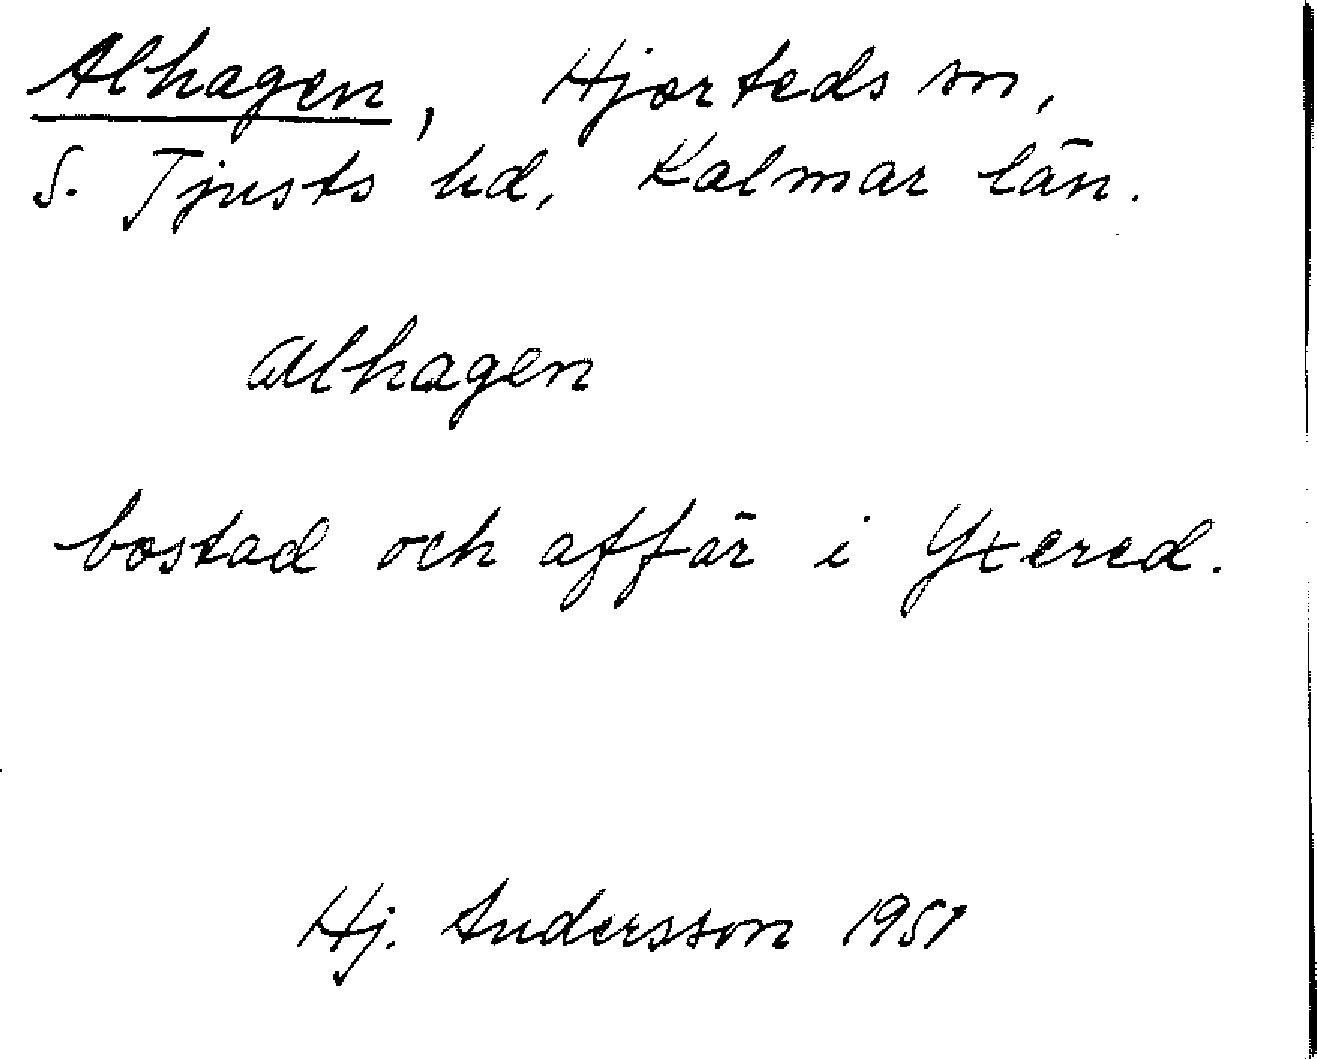 Alhagen, Hjorteds sn,
S. Tjusts hd, Kalmar län.
alhagen
bostad och affär i Yxered.
Hj. Andersson 1951